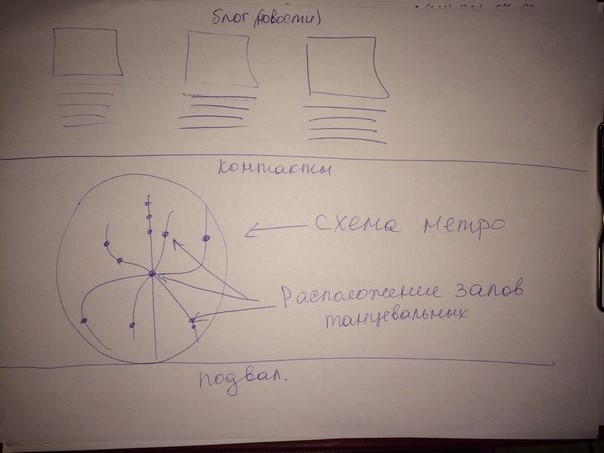 блог (новости)
контакты
схема метро
Расположение залов
танцевальных
подвал.